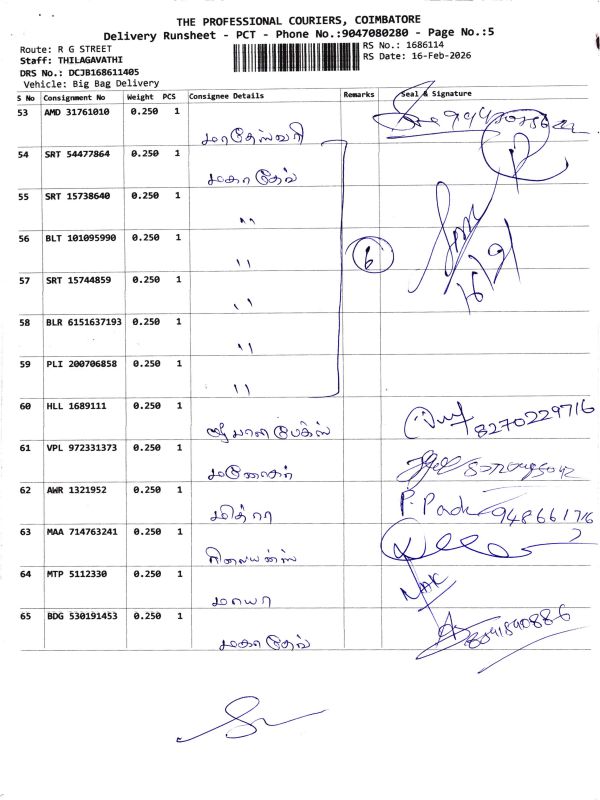 THE PROFESSIONAL COURIERS, COIMBATORE
Delivery Runsheet - PCT - Phone No.:9047080280 - Page No.:5
Route: R G STREET
Staff: THILAGAVATHI
DRS No.: DCJB168611405
Vehicle: Big Bag Delivery
RS No.: 1686114
RS Date: 16-Feb-2026
S No Consignment No Weight PCS Consignee Details Remarks Seal & Signature
53 AMD 31761010 0.250 1
மாதேஸ்வரி
54 SRT 54477864 0.250 1
மகாதேவ்
55 SRT 15738640 0.250 1
"
56 BLT 101095990 0.250 1
" 6
57 SRT 15744859 0.250 1
"
58 BLR 6151637193 0.250 1
"
59 PLI 200706858 0.250 1
"
60 HLL 1689111 0.250 1
8270229716
61 VPL 972331373 0.250 1
மனோகர்
62 AWR 1321952 0.250 1
மித்ரா
948661716
63 MAA 714763241 0.250 1
ரிலையன்ஸ்
64 MTP 5112330 0.250 1
மாயா
65 BDG 530191453 0.250 1
மகாதேவ்